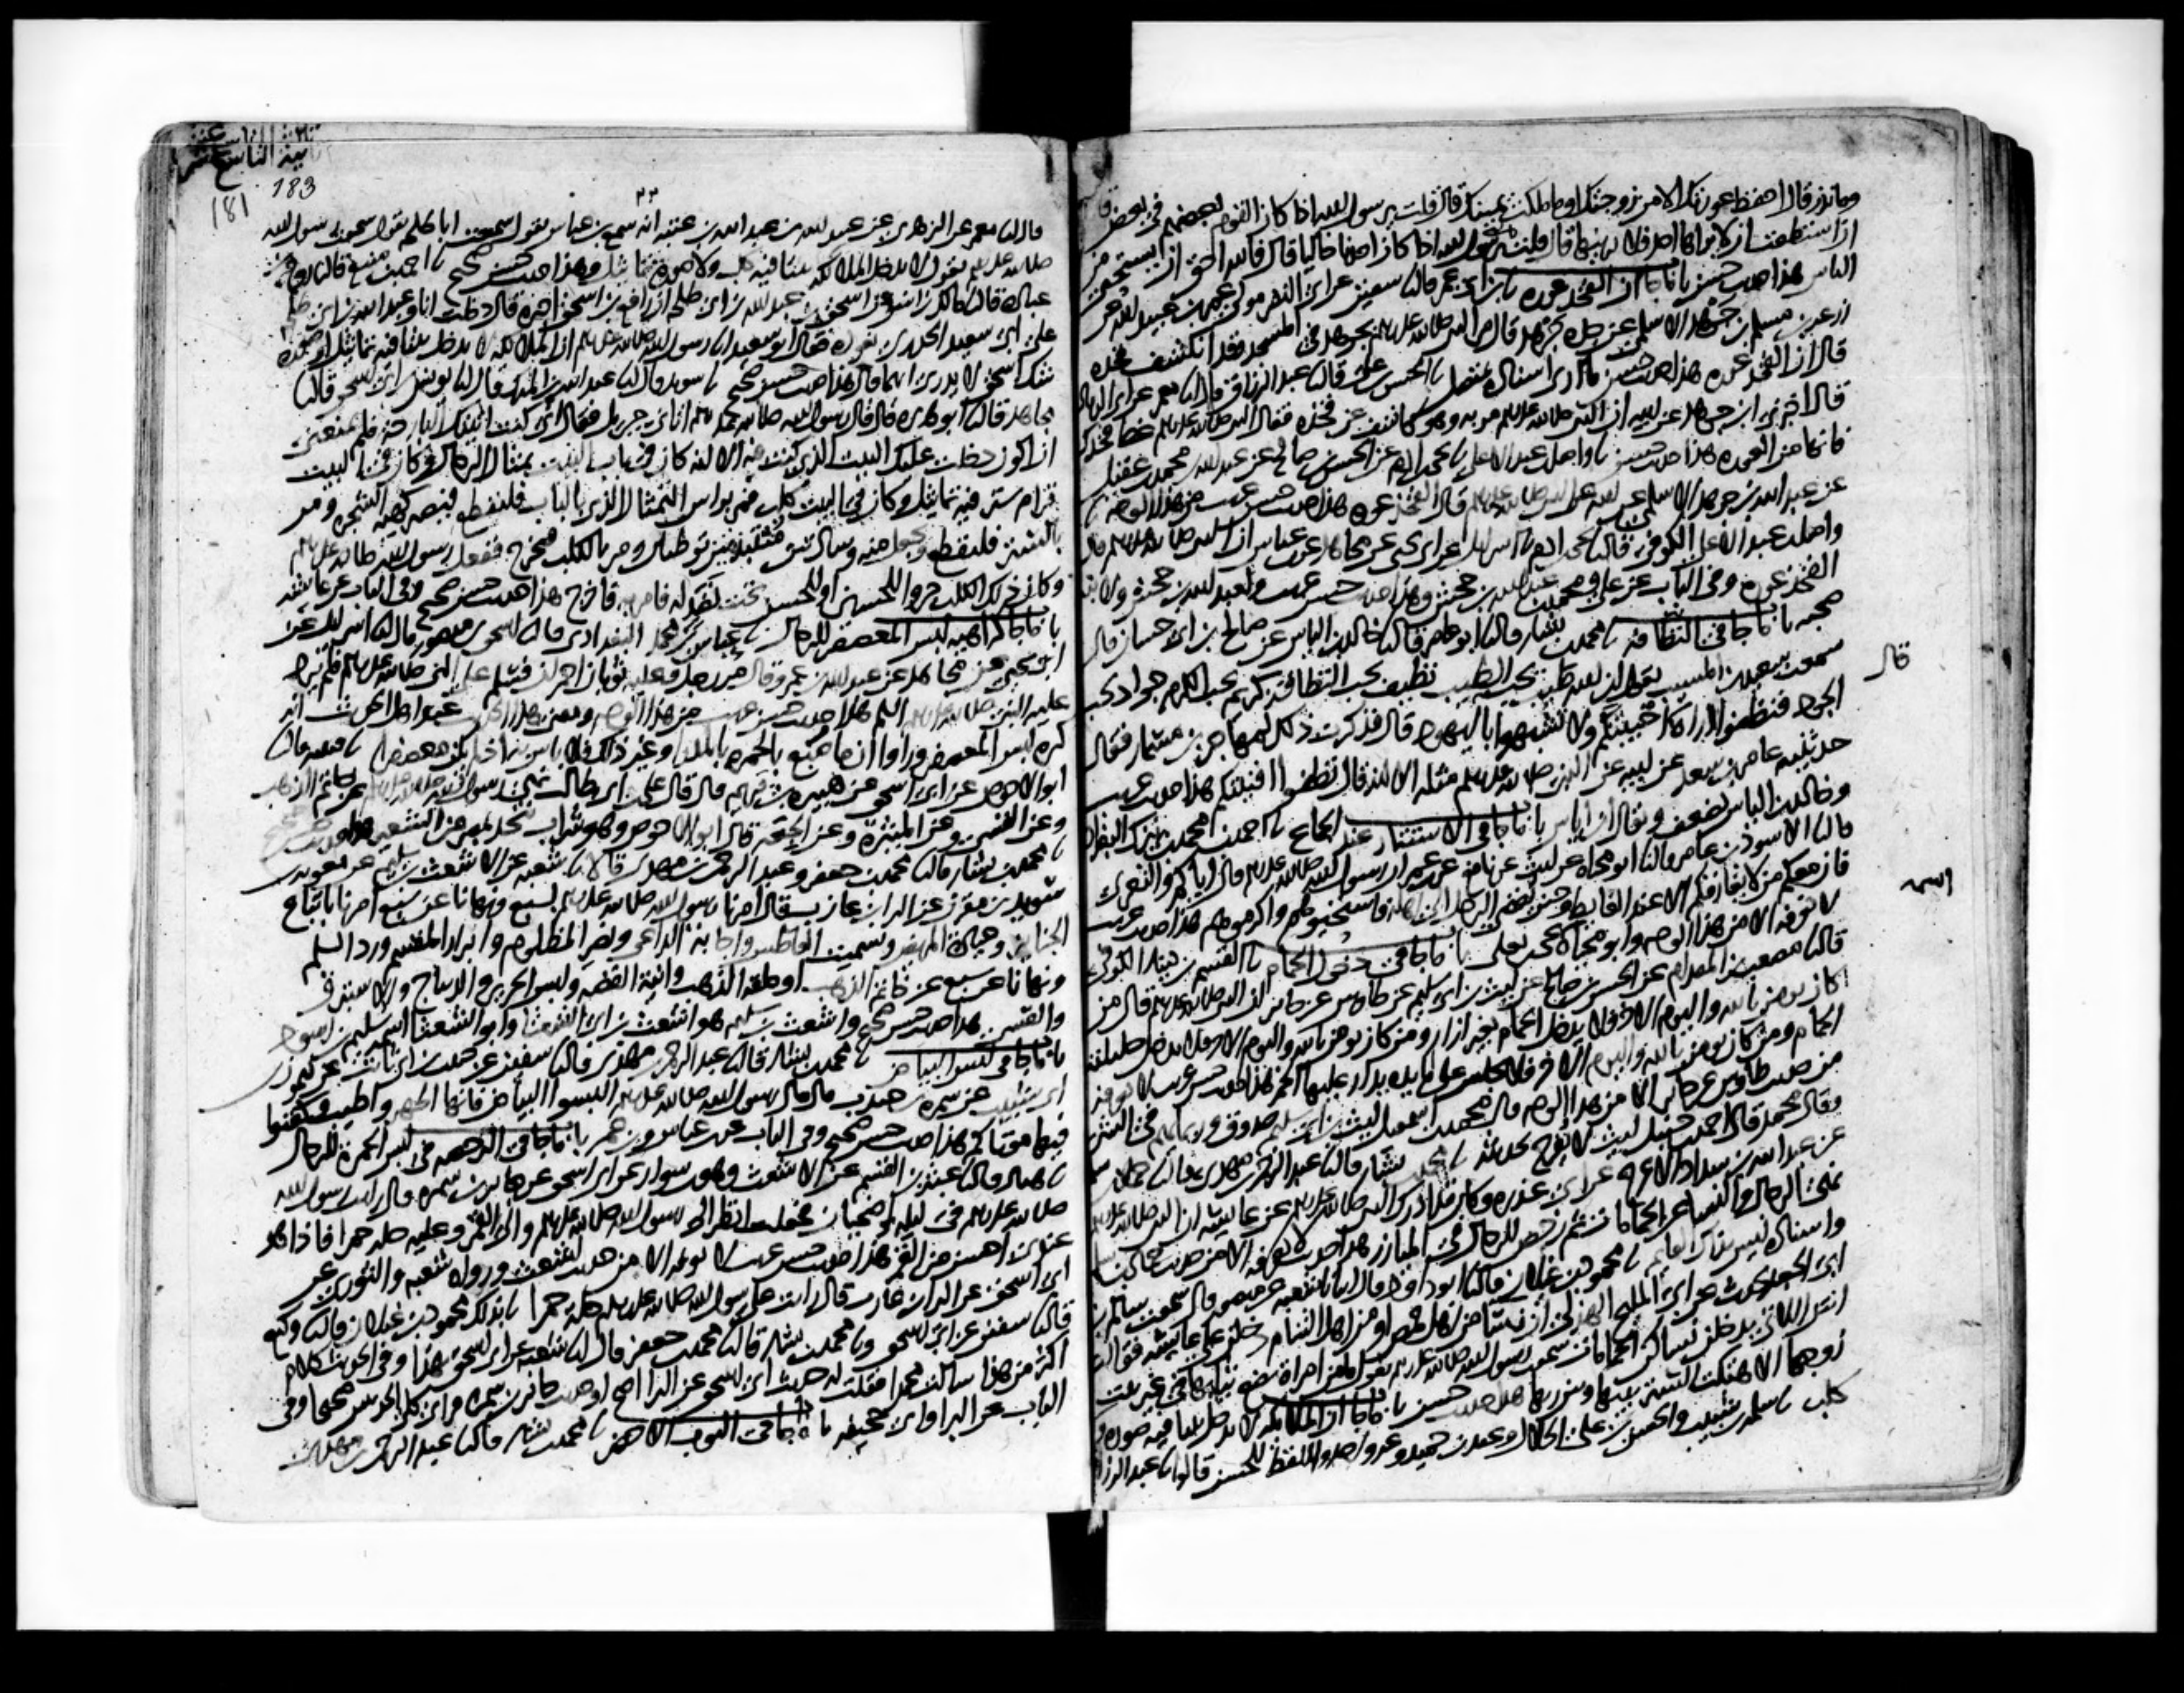 وما نذر قال احفظ عورتك الا من زوجتك او ما ملكت يمينك قال قلت يرسول الله اذا كان القوم بعضهم في بعض قال
ان استطعت ان لا يراها احد فلا يرينها قال قلت يا نبي الله اذا كان احدنا خاليا قال فالله احق ان يستحيى منه
الناس هذا حديث حسن باب ما جا ان الفخذ عورة نا ابن ابي عمر قال نا سفين عن ابي النضر مولى عمر بن عبيد الله عن
زرعة بن مسلم بن جرهد الاسلمي عن جده جرهد قال مر النبي صلى الله عليه وسلم بجرهد في المسجد وقد انكشف فخذه
قال ان الفخذ عورة هذا حديث حسن ما ارى اسناده بمتصل نا الحسن بن علي قال نا عبد الرزاق قال نا معمر عن ابي الزناد
قال اخبرني ابن جرهد عن ابيه ان النبي صلى الله عليه وسلم مر به وهو كاشف عن فخذه فقال النبي صلى الله عليه وسلم غط فخذك
فانها من العورة هذا حديث حسن نا واصل بن عبد الاعلى نا يحيى بن ادم عن الحسن بن صالح عن عبد الله بن محمد بن عقيل
عن عبد الله بن جرهد الاسلمي عن ابيه عن النبي صلى الله عليه وسلم قال الفخذ عورة هذا حديث حسن غريب من هذا الوجه نا
واصل بن عبد الاعلى الكوفي قال نا يحيى بن ادم نا اسرائيل عن ابي يحيى عن مجاهد عن ابن عباس ان النبي صلى الله عليه وسلم قال
الفخذ عورة وفي الباب عن علي ومحمد بن عبد الله بن جحش وهذا حديث حسن غريب ولعبد الله بن جحش ولابنه
صحبة باب ما جا في النظافة نا محمد بن بشار قال نا ابو عامر قال نا خالد بن الياس عن صالح بن ابي حسان قال
سمعت سعيد بن المسيب يقول ان الله طيب يحب الطيب نظيف يحب النظافة كريم يحب الكرم جواد يحب
قال
الجود فنظفوا اراه قال افنيتكم ولا تشبهوا باليهود قال فذكرت ذلك لمهاجر بن مسمار فقال
حدثنيه عامر بن سعد عن ابيه عن النبي صلى الله عليه وسلم مثله الا انه قال نظفوا افنيتكم هذا حديث غريب
وخالد بن الياس يضعف ويقال ابن اياس باب ما جا في الاستتار عند الجماع نا احمد بن محمد بن نيزك البغدادي
قال نا الاسود بن عامر قال نا ابو محياة عن ليث عن نافع عن ابن عمر ان رسول الله صلى الله عليه وسلم قال اياكم والتعري
فان معكم من لا يفارقكم الا عند الغايط وحين يفضي الرجل الى اهله فاستحيوهم واكرموهم هذا حديث غريب
لا نعرفه الا من هذا الوجه وابو محياة يحيى بن يعلى باب ما جا في دخول الحمام نا القسم بن دينار الكوفي
قال نا مصعب بن المقدام عن الحسن بن صالح عن ليث بن ابي سليم عن طاوس عن جابر ان النبي صلى الله عليه وسلم قال من
كان يومن بالله واليوم الاخر فلا يدخل الحمام بغير ازار ومن كان يومن بالله واليوم الاخر فلا يدخل حليلته
الحمام ومن كان يومن بالله واليوم الاخر فلا يجلس على مايدة يدار عليها الخمر هذا حديث حسن غريب لا نعرفه
من حديث طاوس عن جابر الا من هذا الوجه قال محمد بن اسمعيل ليث بن ابي سليم صدوق وربما يهم في الشي
وقال محمد قال احمد بن حنبل ليث لا يفرح بحديثه نا محمد بن بشار قال نا عبد الرحمن بن مهدي قال نا حماد بن سلمة
عن عبد الله بن شداد الاعرج عن ابي عذرة وكان قد ادرك النبي صلى الله عليه وسلم عن عايشة ان النبي صلى الله عليه وسلم
نهى الرجال والنسا عن الحمامات ثم رخص للرجال في الميازر هذا حديث لا نعرفه الا من حديث حماد بن سلمة
واسناده ليس بذاك القايم نا محمود بن غيلان قال نا ابو داود قال انبانا شعبة عن منصور قال سمعت سالم بن
ابي الجعد يحدث عن ابي المليح الهذلي ان نسا من اهل حمص او من اهل الشام دخلن على عايشة فقالت
انتن اللاتي يدخلن نساكن الحمامات سمعت رسول الله صلى الله عليه وسلم يقول ما من امراة تضع ثيابها في غير بيت
زوجها الا هتكت الستر بينها وبين ربها هذا حديث حسن باب ما جا ان الملايكة لا تدخل بيتا فيه صورة ولا
كلب نا سلمة بن شبيب والحسن بن علي الخلال وعبد بن حميد وغير واحد واللفظ للحسن قالوا نا عبد الرزاق
ثانية التاسع عشر
183
181
قال نا معمر عن الزهري عن عبيد الله بن عبد الله بن عتبة انه سمع بن عباس يقول سمعت ابا طلحة يقول سمعت رسول الله
صلى الله عليه وسلم يقول لا تدخل الملايكة بيتا فيه كلب ولا صورة تماثيل وهذا حديث حسن صحيح نا احمد بن منيع قال نا روح بن
عبادة قال نا مالك بن انس عن اسحق بن عبد الله بن ابي طلحة ان رافع بن اسحق اخبره قال دخلت انا وعبد الله بن ابي طلحة
على ابي سعيد الخدري نعوده فقال ابو سعيد انا رسول الله صلى الله عليه وسلم ان الملايكة لا تدخل بيتا فيه تماثيل او صورة
شك اسحق لا يدري ايهما قال هذا حديث حسن صحيح نا سويد قال نا عبد الله بن المبارك قال نا يونس بن ابي اسحق قال نا
مجاهد قال نا ابو هريرة قال قال رسول الله صلى الله عليه وسلم اتاني جبريل فقال اني كنت اتيتك البارحة فلم يمنعني
ان اكون دخلت عليك البيت الذي كنت فيه الا انه كان في باب البيت تمثال الرجال وكان في البيت
قرام ستر فيه تماثيل وكان في البيت كلب فمر براس التمثال الذي بالباب فليقطع فيصير كهية الشجرة ومر
بالستر فليقطع ويجعل منه وسادتين منتبذتين توطيان ومر بالكلب فيخرج ففعل رسول الله صلى الله عليه وسلم
وكان ذلك الكلب جروا للحسين او للحسن تحت نضد له فامر به فاخرج هذا حديث حسن صحيح وفي الباب عن عايشة
باب ما جا في كراهية لبس المعصفر للرجال نا عباس بن محمد البغدادي قال نا اسحق بن منصور قال نا اسرائيل عن
ابي يحيى عن مجاهد عن عبد الله بن عمرو قال مر رجل وعليه ثوبان احمران فسلم على النبي صلى الله عليه وسلم فلم يرد
عليه النبي صلى الله عليه وسلم السلم هذا حديث حسن غريب من هذا الوجه ومعنى هذا الحديث عند اهل الحديث انه
كره لبس المعصفر وراوا ان ما صبغ بالحمرة بالمدر او غير ذلك فلا باس به اذا لم يكن معصفرا نا قتيبة قال نا
ابو الاحوص عن ابي اسحق عن هبيرة بن يريم قال قال علي بن ابي طالب نهى رسول الله صلى الله عليه وسلم عن خاتم الذهب
وعن القسي وعن الميثرة وعن الجعة قال ابو الاحوص وهو شراب يتخذ بمصر من الشعير هذا حديث حسن صحيح
نا محمد بن بشار قال نا محمد بن جعفر وعبد الرحمن بن مهدي قالا نا شعبة عن الاشعث بن سليم عن معوية بن
سويد بن مقرن عن البرا بن عازب قال امرنا رسول الله صلى الله عليه وسلم بسبع ونهانا عن سبع امرنا باتباع
الجنايز وعيادة المريض وتشميت العاطس واجابة الداعي ونصر المظلوم وابرار المقسم ورد السلم
ونهانا عن سبع عن خاتم الذهب او حلقة الذهب وانية الفضة ولبس الحرير والديباج والاستبرق
والقسي هذا حديث حسن صحيح واشعث بن سليم هو اشعث بن ابي الشعثا وابو الشعثا اسمه سليم بن اسود
باب ما جا في لبس البياض نا محمد بن بشار قال نا عبد الرحمن بن مهدي قال نا سفين عن حبيب بن ابي ثابت عن ميمون بن
ابي شبيب عن سمرة بن جندب قال قال رسول الله صلى الله عليه وسلم البسوا البياض فانها اطهر واطيب وكفنوا
فيها موتاكم هذا حديث حسن صحيح وفي الباب عن ابن عباس وابن عمر باب ما جا في الرخصة في لبس الحمرة للرجال
نا هناد قال نا عبثر بن القسم عن الاشعث وهو بن سوار عن ابي اسحق عن جابر بن سمرة قال رايت رسول الله
صلى الله عليه وسلم في ليلة اضحيان فجعلت انظر الى رسول الله صلى الله عليه وسلم والى القمر وعليه حلة حمرا فاذا هو
عندي احسن من القمر هذا حديث حسن غريب لا نعرفه الا من حديث اشعث ورواه شعبة والثوري عن
ابي اسحق عن البرا بن عازب قال رايت على رسول الله صلى الله عليه وسلم حلة حمرا نا بذلك محمود بن غيلان قال نا وكيع
قال نا سفين عن ابي اسحق ونا محمد بن بشار قال نا محمد بن جعفر قال نا شعبة عن ابي اسحق بهذا وفي الحديث كلام
اكثر من هذا سالت محمدا فقلت له حديث ابي اسحق عن البرا اصح او حديث جابر بن سمرة فراى كلا الحديثين صحيحا وفي
الباب عن البرا وابي جحيفة باب ما جا في الثوب الاخضر نا محمد بن بشار قال نا عبد الرحمن بن مهدي